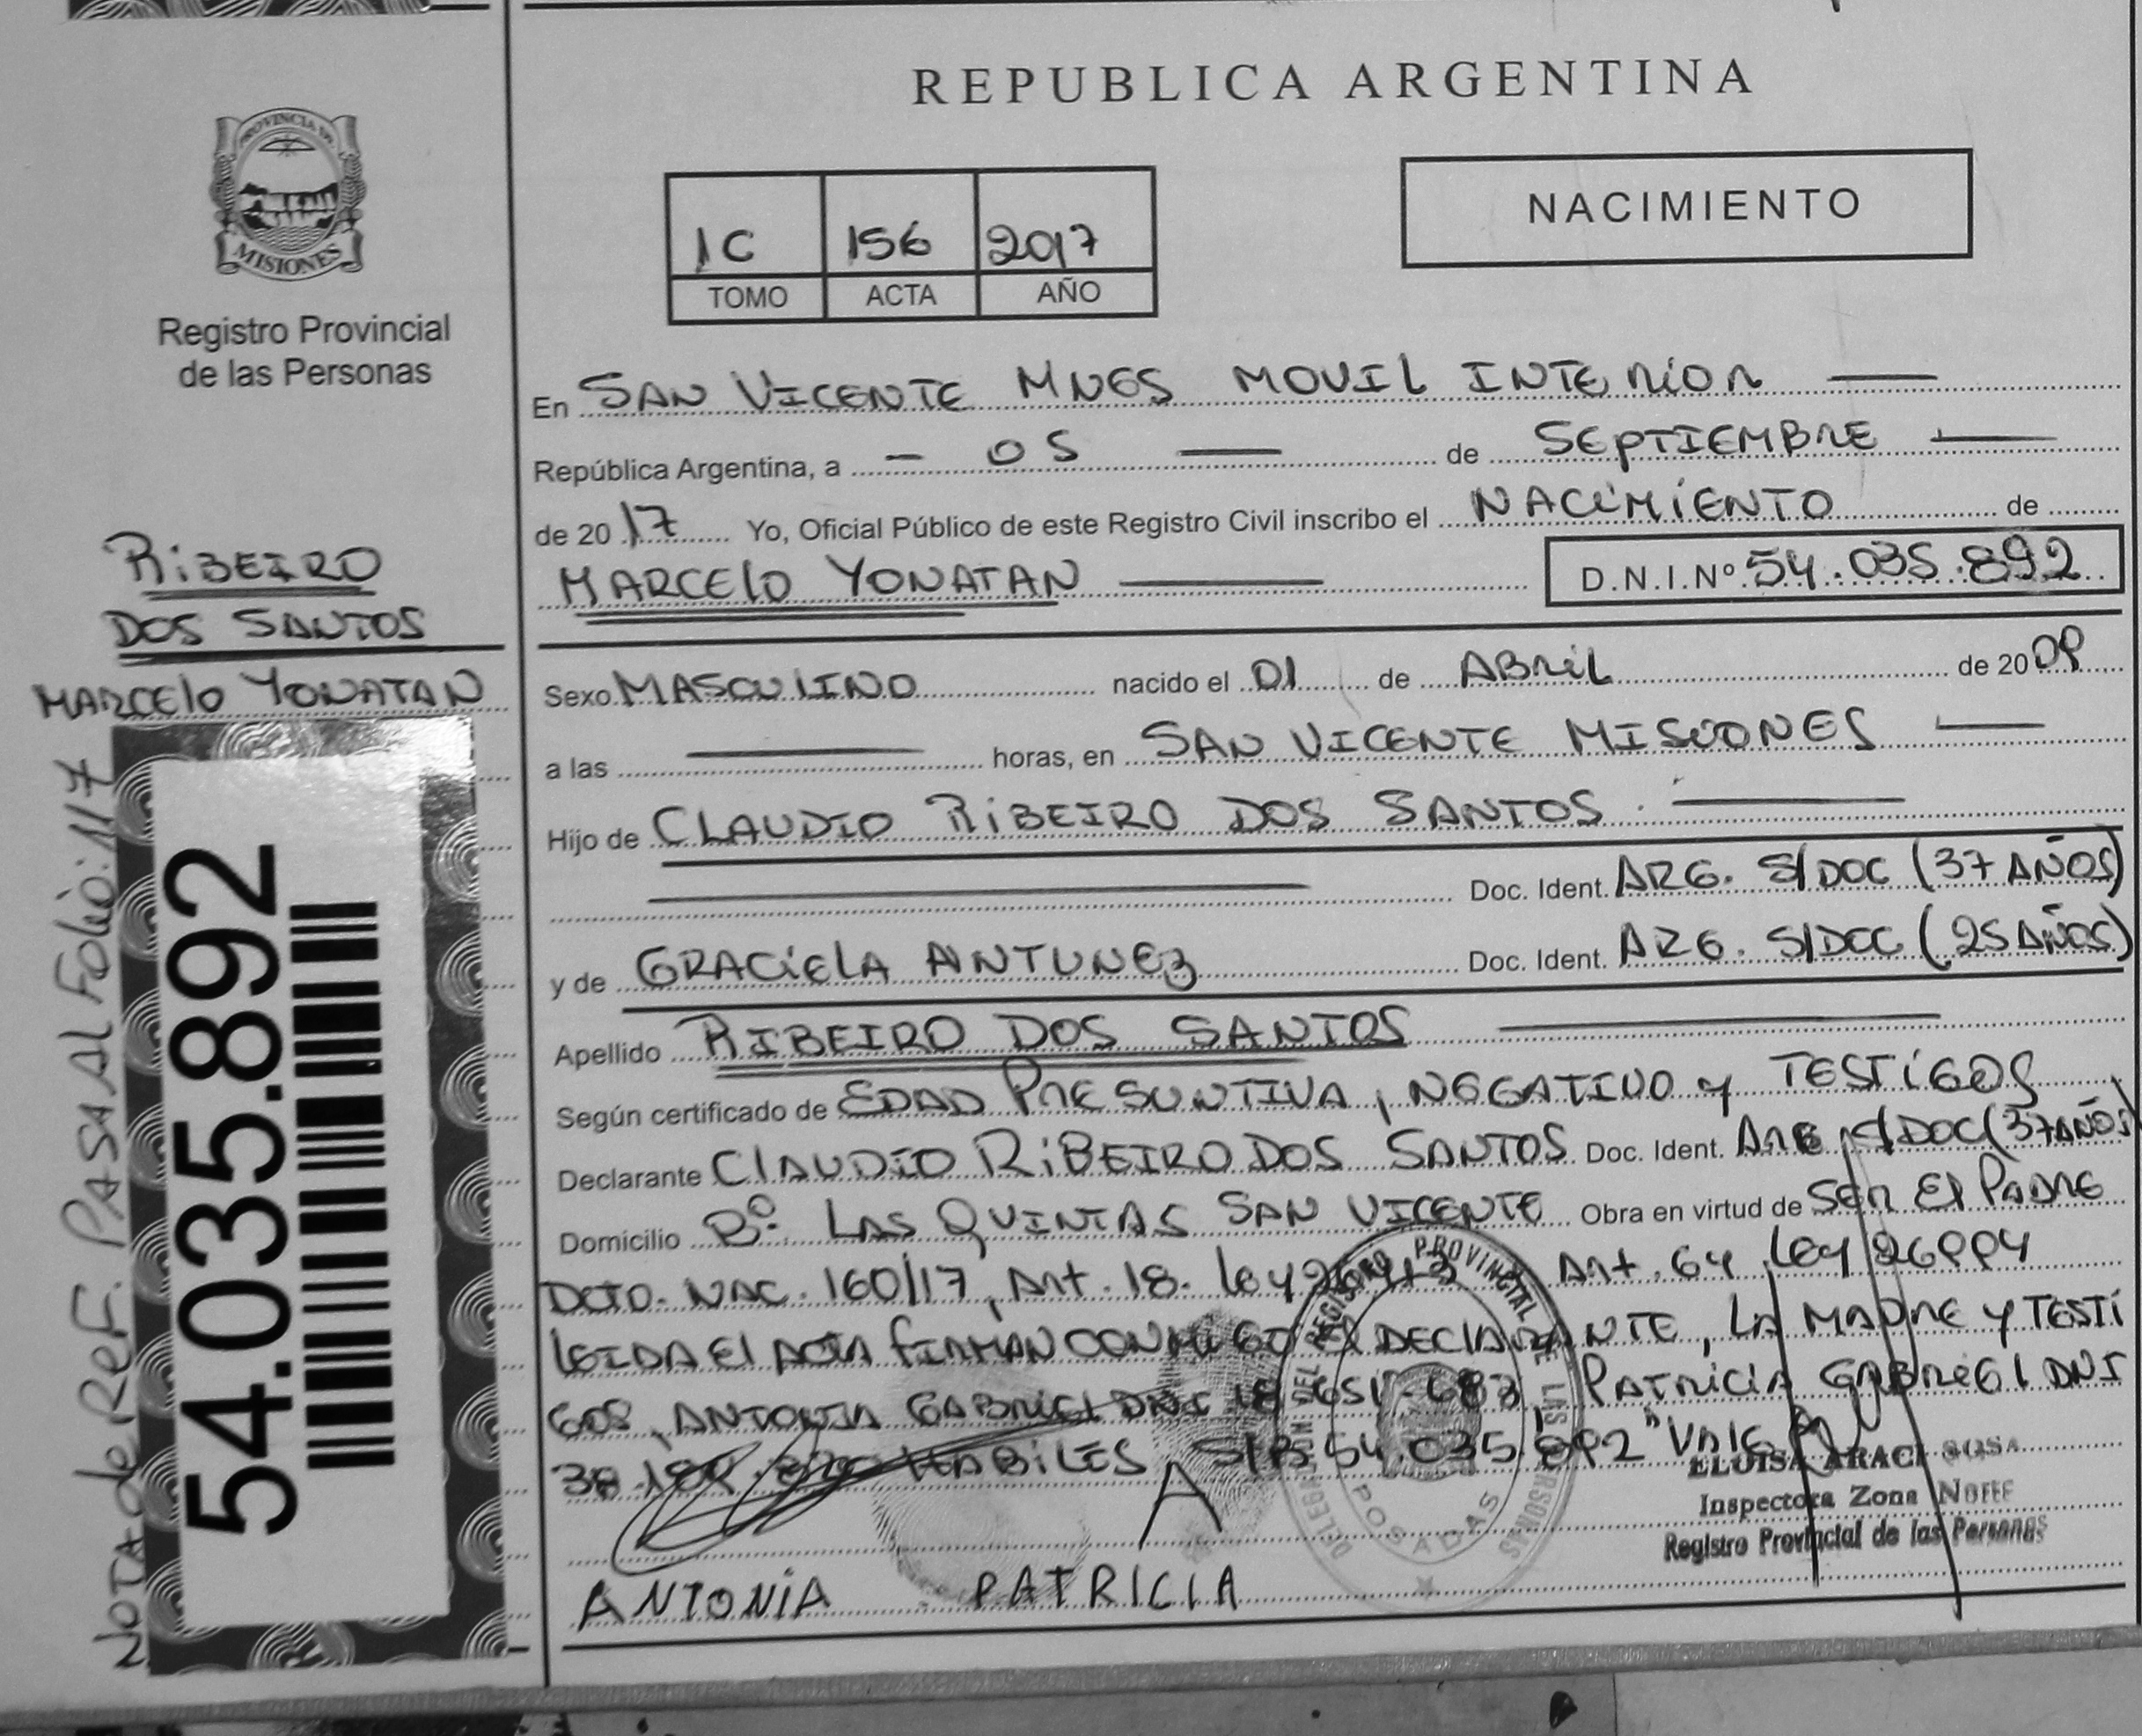 REPUBLICA ARGENTINA
PROVINCIA DE
MISIONES
Registro Provincial
de las Personas
NACIMIENTO
1C 156 2017
TOMO ACTA AÑO
En SAN VICENTE MNES MOVIL INTERIOR
República Argentina, a - 05 de SEPTIEMBRE
de 2017 Yo, Oficial Público de este Registro Civil inscribo el NACIMIENTO de
MARCELO YONATAN D.N.I.Nº 54.035.892
RIBEIRO
DOS SANTOS
MARCELO YONATAN
Sexo MASCULINO nacido el 01 de ABRIL de 2009
a las horas, en SAN VICENTE MISIONES
Hijo de CLAUDIO RIBEIRO DOS SANTOS
Doc. Ident. ARG. S/DOC (37 AÑOS)
y de GRACIELA ANTUNEZ Doc. Ident. ARG. S/DOC (25 AÑOS)
Apellido RIBEIRO DOS SANTOS
Según certificado de EDAD PRESUNTIVA, NEGATIVO y TESTIGOS
Declarante CLAUDIO RIBEIRO DOS SANTOS Doc. Ident. ARG S/DOC (37 AÑOS)
Domicilio Bº. LAS QUINTAS SAN VICENTE Obra en virtud de SER EL PADRE
DCTO. NAC. 160/17, Art. 18. ley 26413 Art. 64 ley 26994
LEIDA El ACTA FIRMAN CONMIGO El DECLARANTE, LA MADRE Y TESTI
GOS, ANTONIA GABRIEL DNI PATRICIA GABRIEL DNI
HABILES S/B 54.035.892 "VALE
ELOISA ARACI SOSA
Inspectora Zona Norte
Registro Provincial de las Personas
A
ANTONIA PATRICIA
REGISTRO PROVINCIAL DE LAS PERSONAS
POSADAS
54.035.892
NOTA de REF. PASA Al Folio: 117